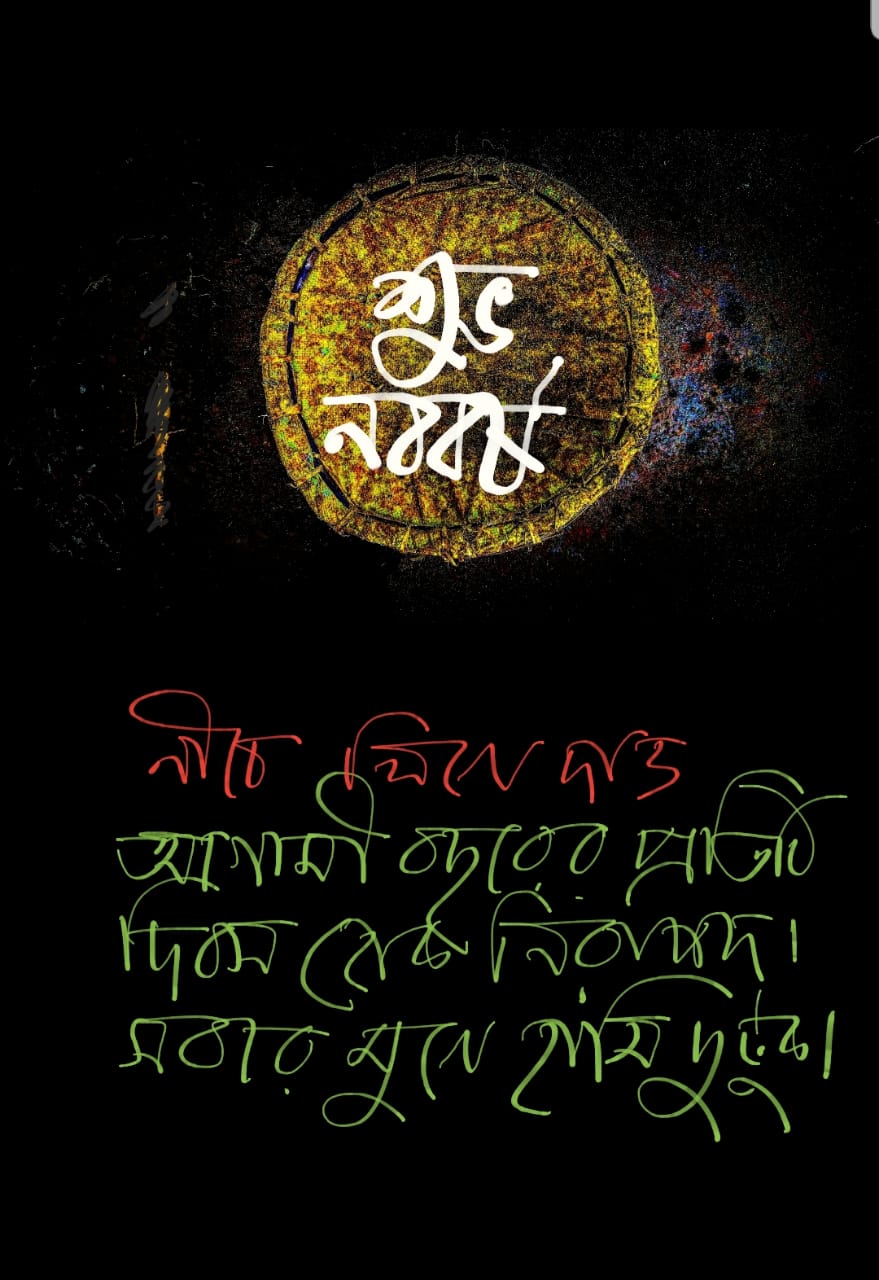 শুভ
নববর্ষ
নীচে লিখে দাও
আগামী বছরের প্রতিটি
দিবস হোক নিরাপদ।
সবার মুখে হাসি ফুটুক।